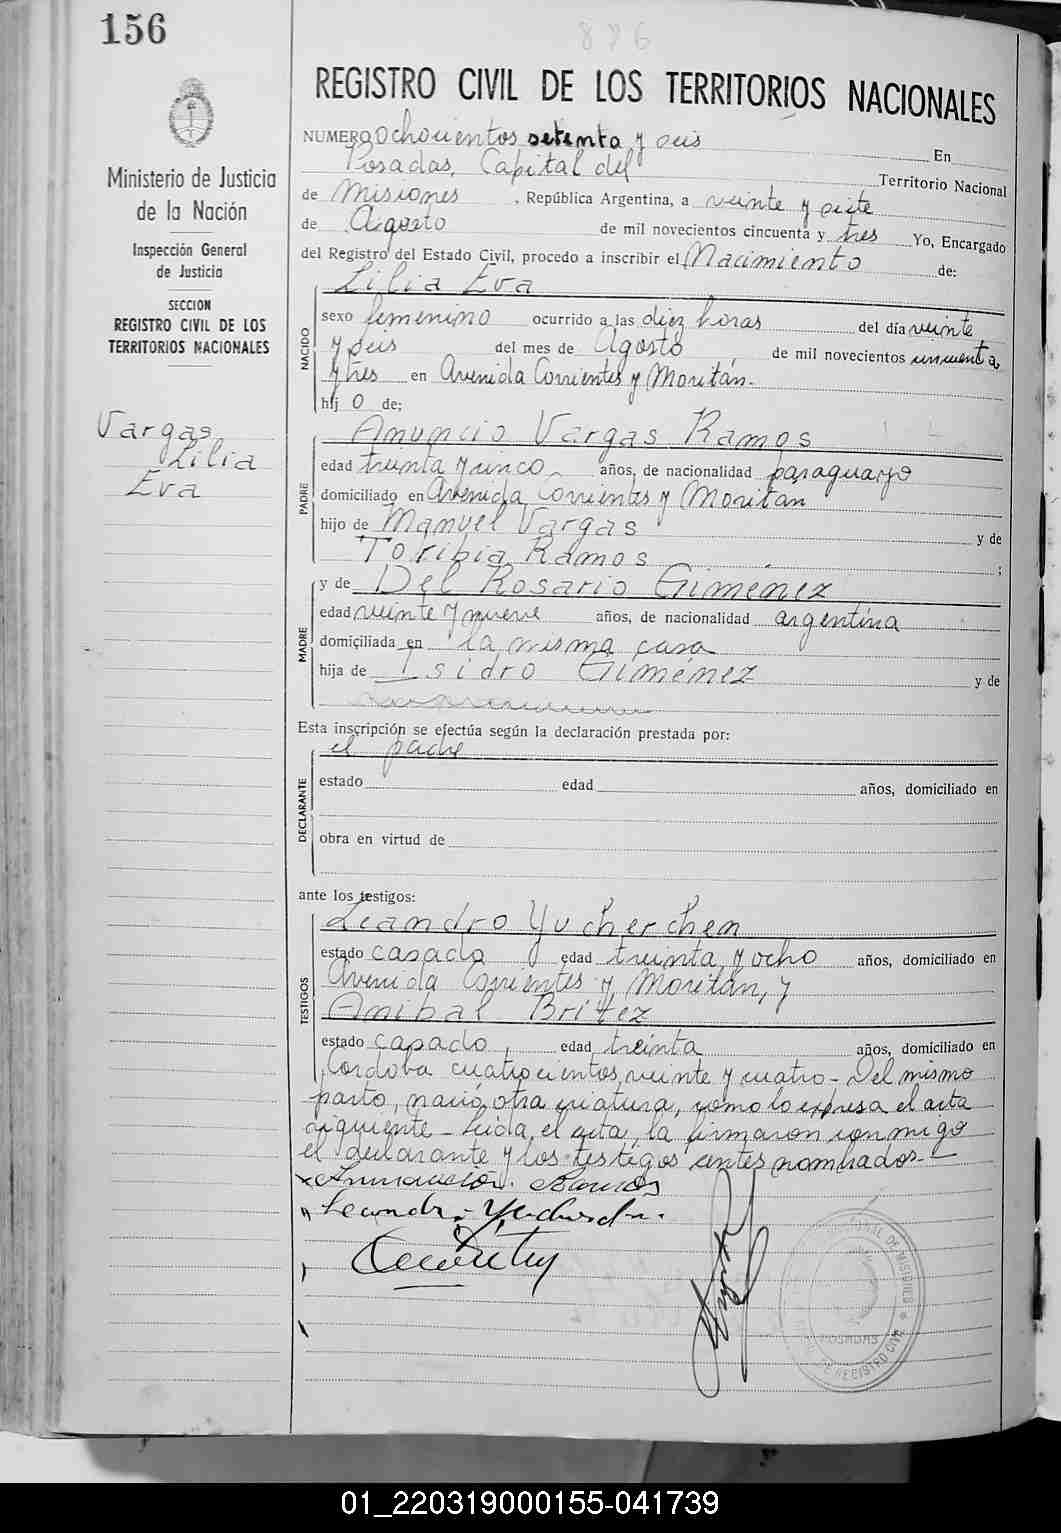 156
876
REGISTRO CIVIL DE LOS TERRITORIOS NACIONALES
Ministerio de Justicia
de la Nación
Inspección General
de Justicia
SECCION
REGISTRO CIVIL DE LOS
TERRITORIOS NACIONALES
Vargas
Lilia
Eva
NUMERO ochocientos setenta y seis En
Posadas, Capital del Territorio Nacional
de Misiones, República Argentina, a veinte y siete
de Agosto de mil novecientos cincuenta y tres Yo, Encargado
del Registro del Estado Civil, procedo a inscribir el Nacimiento de:
NACIDO
Lilia Eva
sexo femenino ocurrido a las diez horas del día veinte
y seis del mes de Agosto, de mil novecientos cincuenta
y tres en Avenida Corrientes y Moritán.
hij o de;
PADRE
Anuncio Vargas Ramos
edad treinta y cinco años, de nacionalidad paraguayo
domiciliado en Avenida Corrientes y Moritán
hijo de Manuel Vargas y de
Toribia Ramos ;
MADRE
y de Del Rosario Giménez
edad veinte y nueve años, de nacionalidad argentina
domiciliada en la misma casa
hija de Isidro Giménez y de
Esta inscripción se efectúa según la declaración prestada por:
DECLARANTE
el padre
estado edad años, domiciliado en
obra en virtud de
ante los testigos:
TESTIGOS
Leandro Yucherchen
estado casado edad treinta y ocho años, domiciliado en
Avenida Corrientes y Moritán, y
Anibal Britez
estado casado, edad treinta años, domiciliado en
Córdoba cuatrocientos veinte y cuatro - Del mismo
parto, nació otra criatura, como lo expresa el acta
siguiente - Leída el acta, la firmaron conmigo
el declarante y los testigos antes nombrados. -
Ramos
POSADAS
01_220319000155-041739